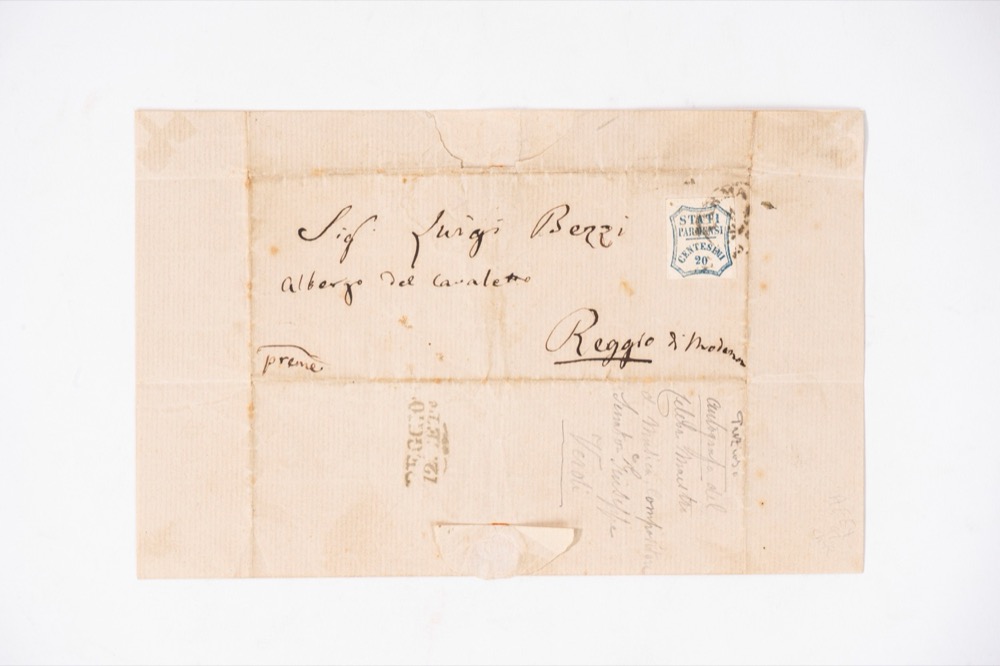 Sig.r Luigi Bezzi
albergo del Cavaletto
Reggio di Modena
preme
STATI
PARMENSI
CENTESIMI
20
autografo del
celebre Maestro
di Musica Compositore
e
Senatore Giuseppe
Verdi